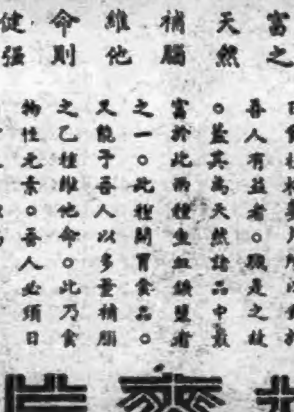 富之
天然
補腦
維他
命則
健强
吾人有益者。職是之故
。蓋其為天然諸品中最
富於此兩種生血鐵鹽者
之一。此種開胃食品。
又能予吾人以多量補腦
之乙種維他命。此乃食
物性元素。吾人必須日